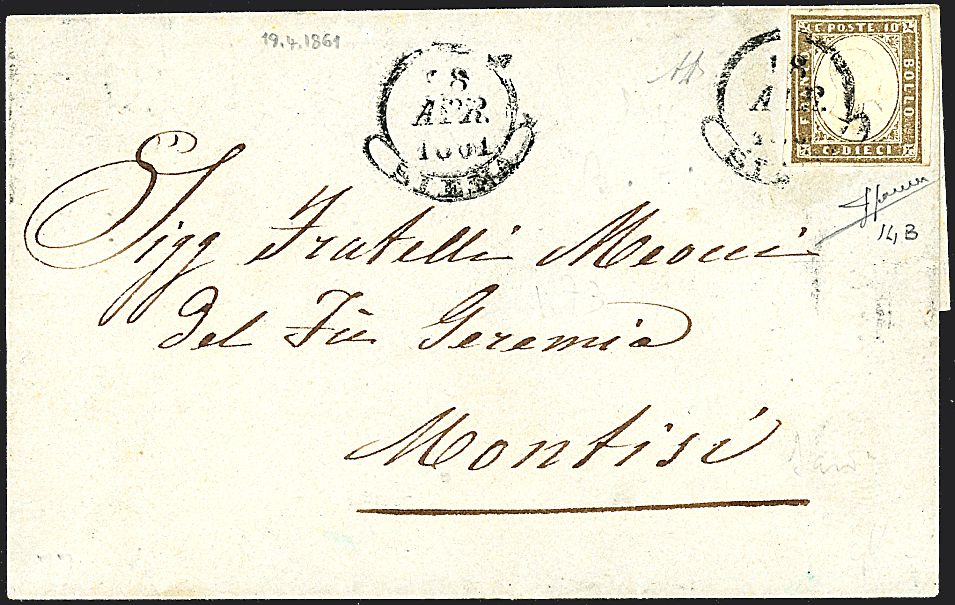 19.4.1861
18
APR
1861
SIENA
18
APR
SIE
C. POSTE 10
FRANCO
BOLLO
C. DIECI
14B
Sigg Fratelli Meocci
del Fù Geremia
Montisi